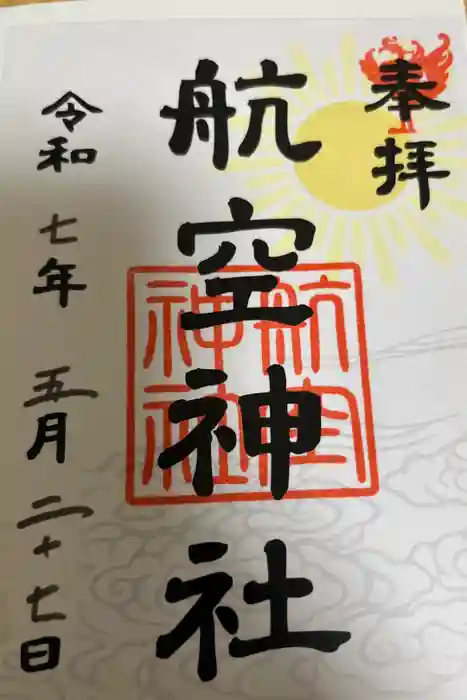 奉拝
航空神社
航空神社
令和七年五月二十七日